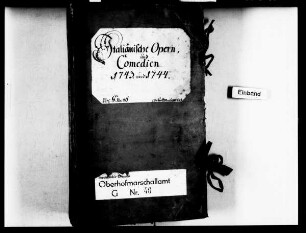 Italiänische Opern,
und
Comedien
1743. und 1744.
Oberhofmarschallamt
G Nr. 40
Einband